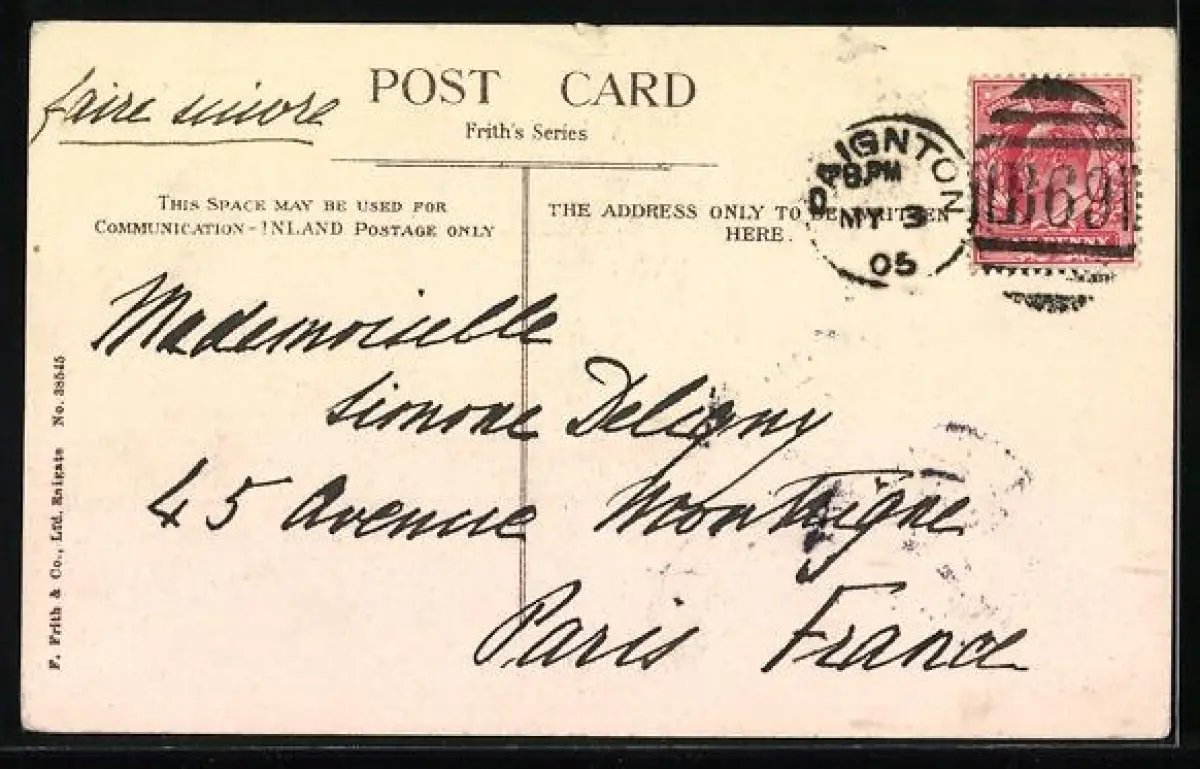 faire suivre
POST CARD
Frith's Series
THIS SPACE MAY BE USED FOR
COMMUNICATION - INLAND POSTAGE ONLY
THE ADDRESS ONLY TO BE WRITTEN
HERE.
PAIGNTON
8.PM
MY 3
05
B69
Mademoiselle
Simone Deligny
45 Avenue Montaigne
Paris France
F. Frith & Co., Ltd. Reigate No. 38545